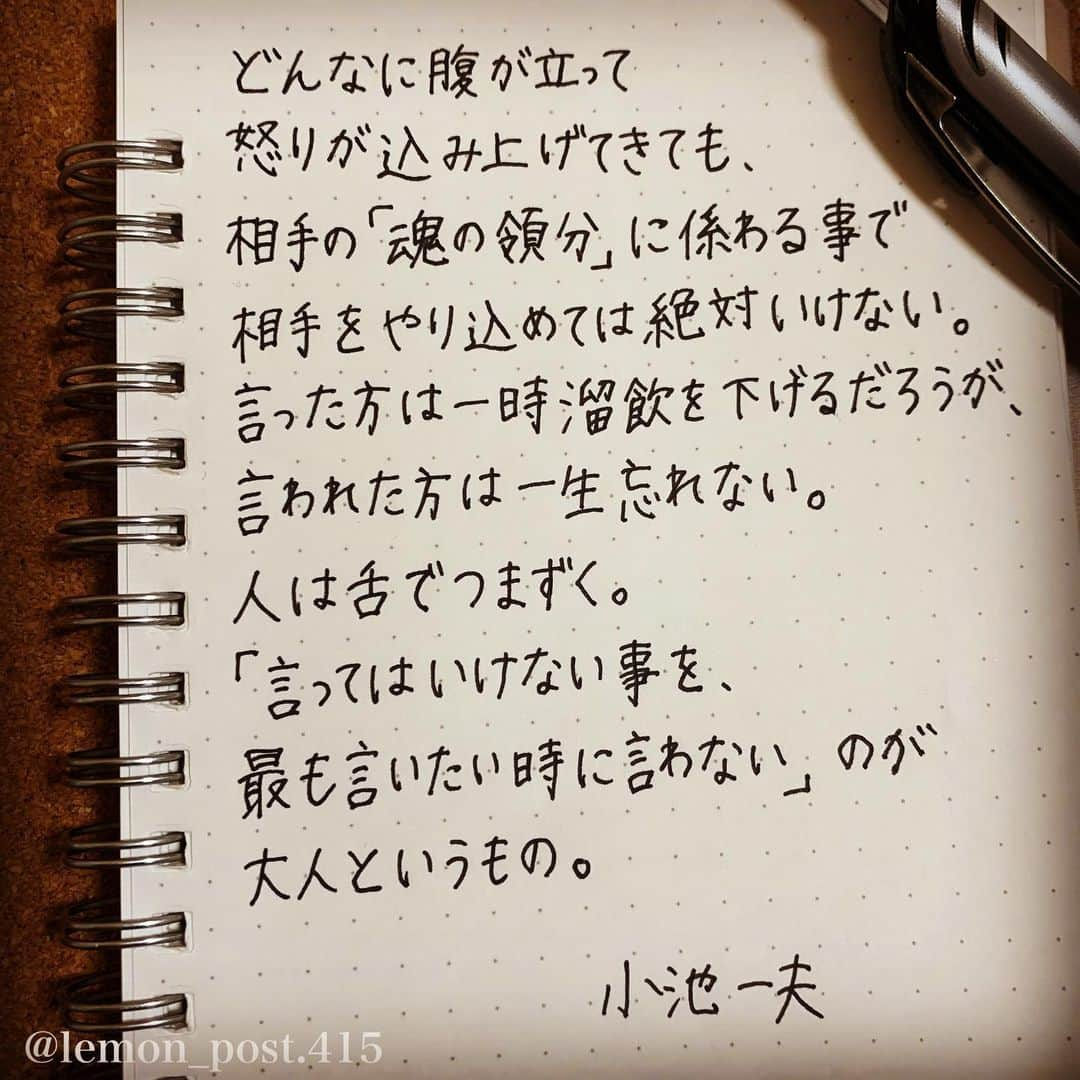 どんなに腹が立って
怒りが込み上げてきても、
相手の「魂の領分」に係わる事で
相手をやり込めては絶対いけない。
言った方は一時溜飲を下げるだろうが、
言われた方は一生忘れない。
人は舌でつまずく。
「言ってはいけない事を、
最も言いたい時に言わない」のが
大人というもの。
小池一夫
@lemon_post.415